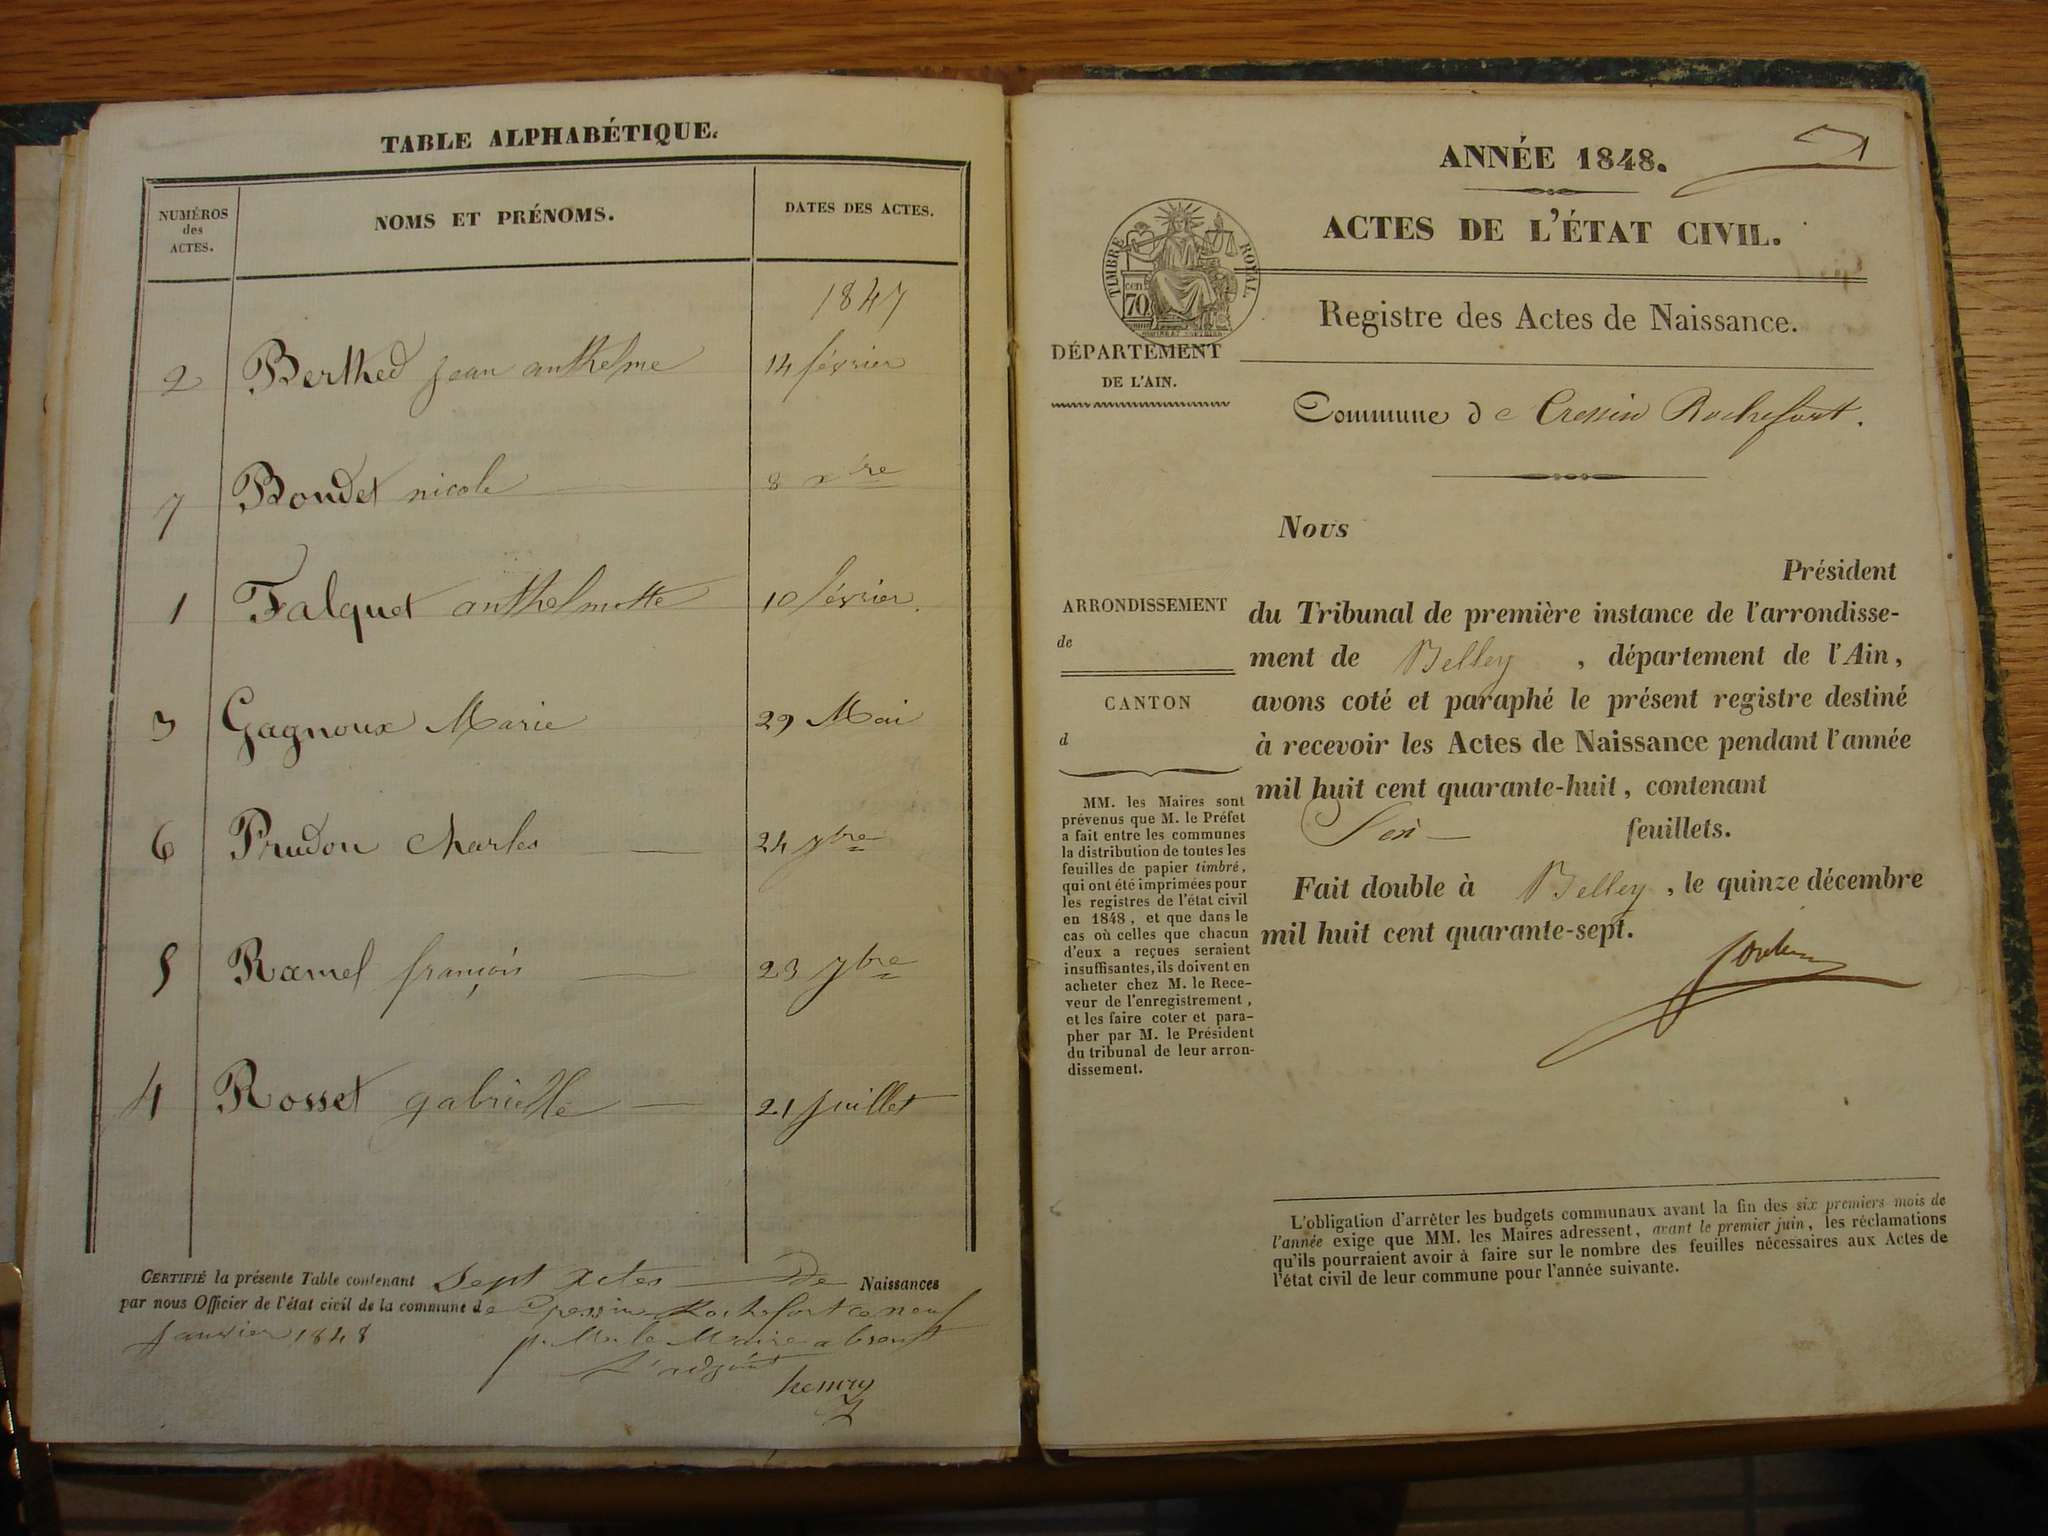 TABLE ALPHABÉTIQUE.
NUMÉROS
des
ACTES.
NOMS ET PRÉNOMS.
DATES DES ACTES.
1847
2 Berthed jean anthelme 14 février
7 Bondet nicole 8 xbre
1 Falquet anthelmette 10 février.
3 Gagnoux Marie 29 Mai
6 Prudon charles 24 9bre
5 Ramel françois 23 9bre
4 Rosset gabrielle 21 juillet
CERTIFIÉ la présente Table contenant Sept Actes de Naissances
par nous Officier de l'état civil de la commune de Cressin Rochefort ce neuf
janvier 1848 p. Mr le Maire absent
L'adjoint
henry
ANNÉE 1848.
1
ACTES DE L'ÉTAT CIVIL.
TIMBRE ROYAL.
cen
70
Registre des Actes de Naissance.
DÉPARTEMENT
DE L'AIN.
Commune de Cressin Rochefort.
Nous
Président
ARRONDISSEMENT
de
CANTON
d
du Tribunal de première instance de l'arrondisse-
ment de Belley, département de l'Ain,
avons coté et paraphé le présent registre destiné
à recevoir les Actes de Naissance pendant l'année
mil huit cent quarante-huit, contenant
Six feuillets.
Fait double à Belley, le quinze décembre
mil huit cent quarante-sept.
MM. les Maires sont
prévenus que M. le Préfet
a fait entre les communes
la distribution de toutes les
feuilles de papier timbré,
qui ont été imprimées pour
les registres de l'état civil
en 1848, et que dans le
cas où celles que chacun
d'eux a reçues seraient
insuffisantes, ils doivent en
acheter chez M. le Rece-
veur de l'enregistrement,
et les faire coter et para-
pher par M. le Président
du tribunal de leur arron-
dissement.
L'obligation d'arrêter les budgets communaux avant la fin des six premiers mois de
l'année exige que MM. les Maires adressent, avant le premier juin, les réclamations
qu'ils pourraient avoir à faire sur le nombre des feuilles nécessaires aux Actes de
l'état civil de leur commune pour l'année suivante.